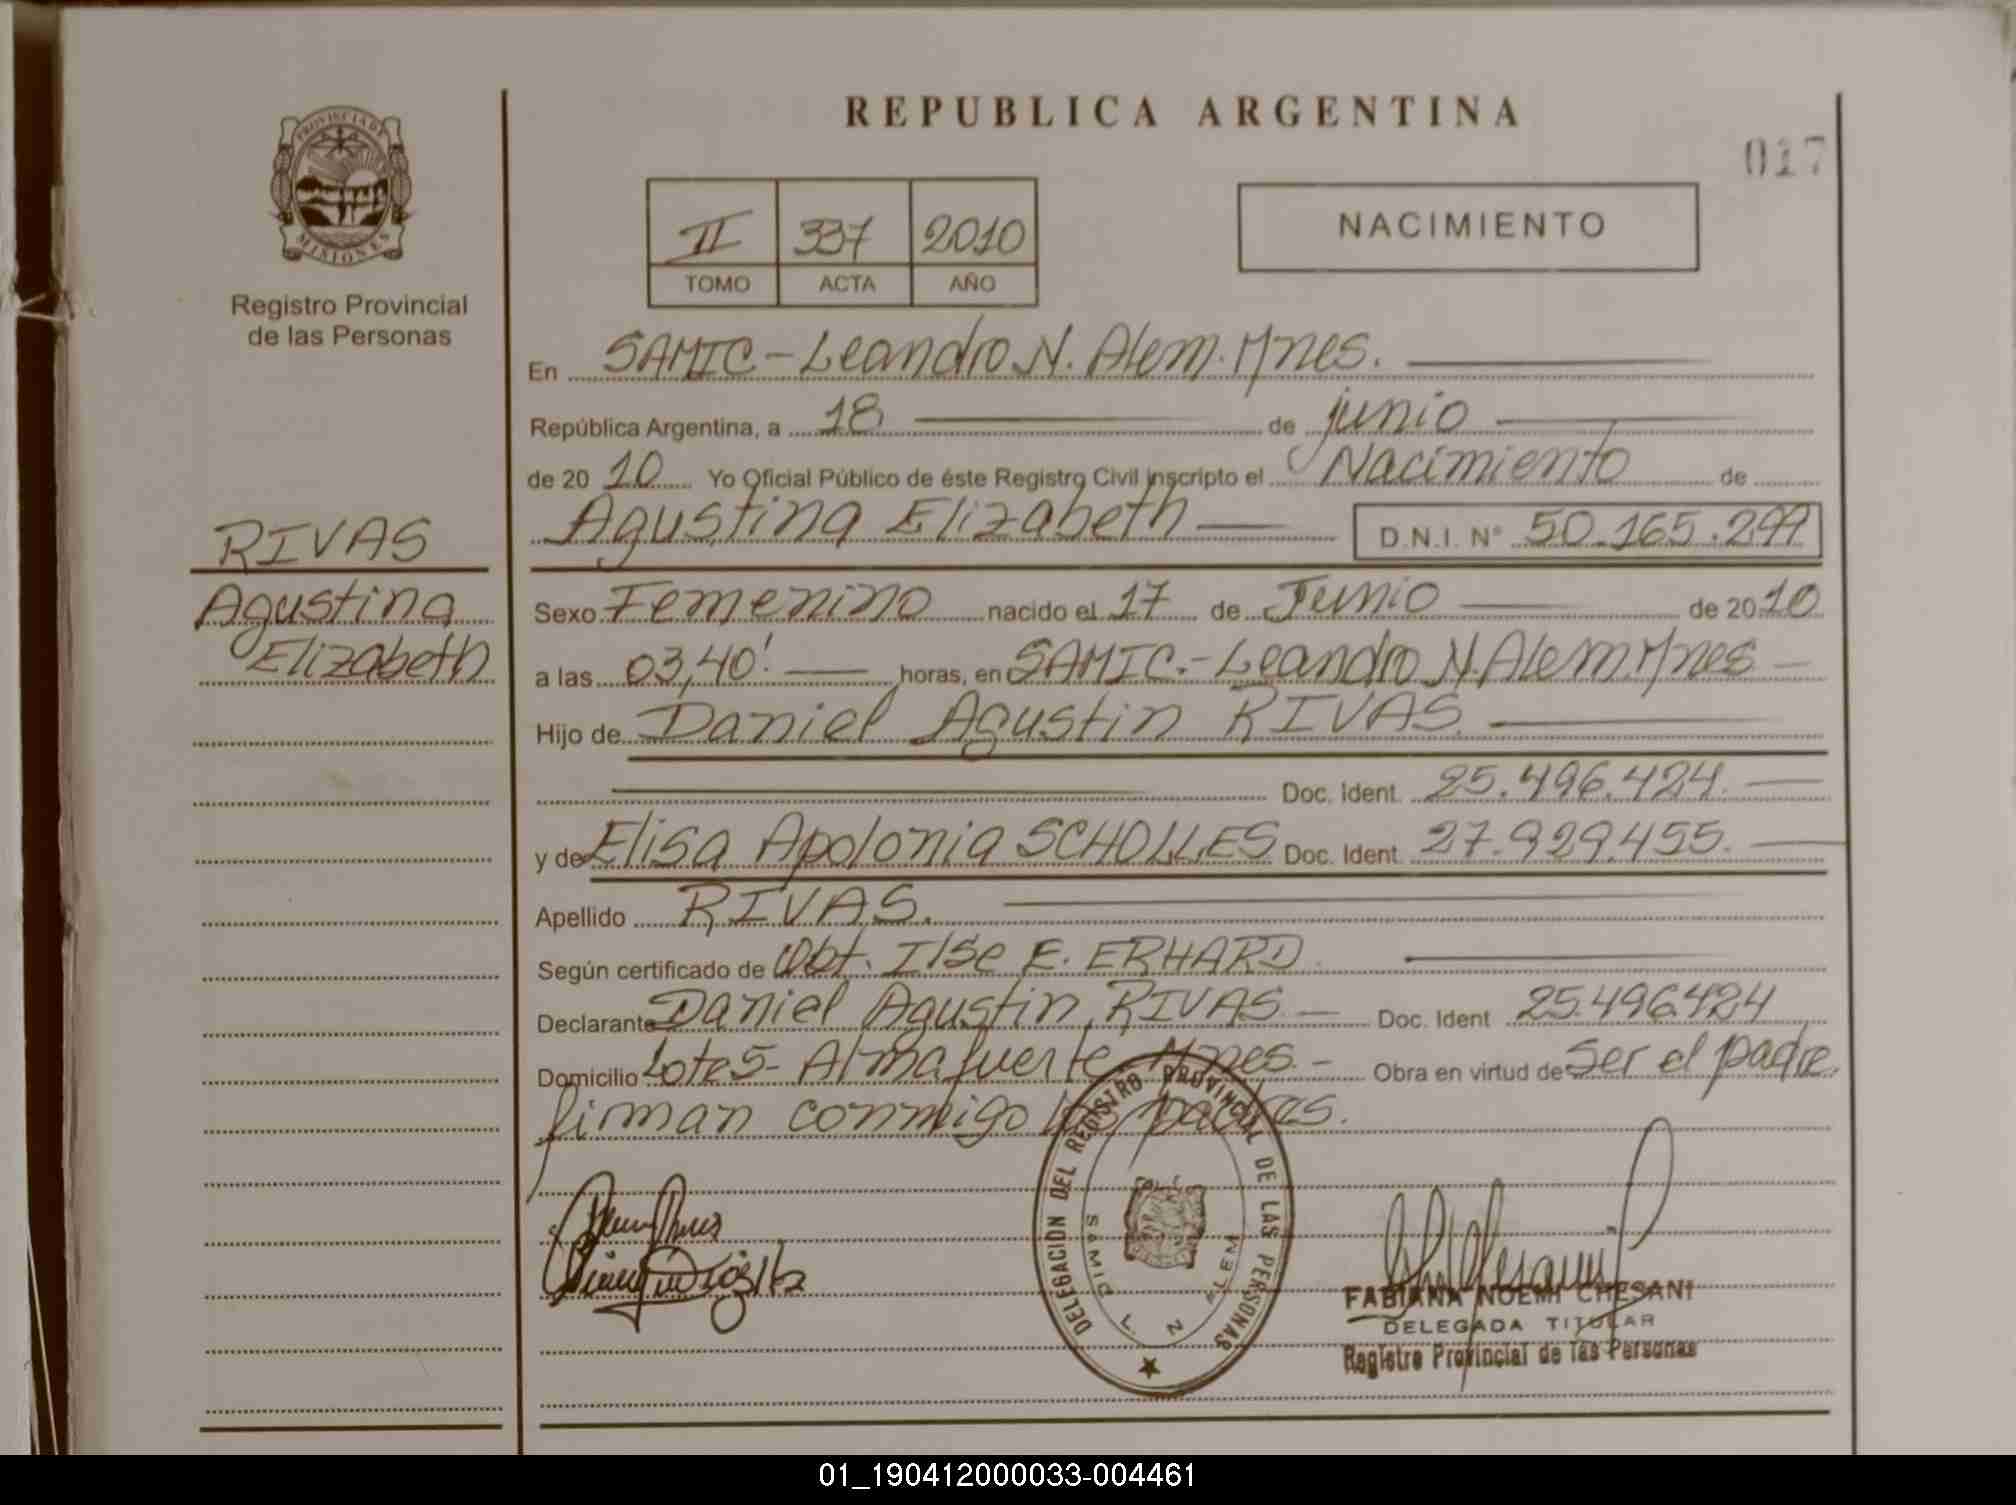 REPUBLICA ARGENTINA
017
PROVINCIA DE
MISIONES
Registro Provincial
de las Personas
II 337 2010
TOMO ACTA AÑO
NACIMIENTO
En SAMIC - Leandro N. Alem. Mnes.
República Argentina, a 18 de junio
de 2010 Yo Oficial Público de éste Registro Civil inscripto el Nacimiento de
Agustina Elizabeth D.N.I. N° 50.165.299
RIVAS
Agustina
Elizabeth
Sexo Femenino nacido el 17 de Junio de 2010
a las 03,40' horas, en SAMIC.- Leandro N. Alem. Mnes
Hijo de Daniel Agustin RIVAS.
Doc. Ident. 25.496.424.
y de Elisa Apolonia SCHOLLES Doc. Ident. 27.929.455.
Apellido RIVAS.
Según certificado de Obt. Ilse E. ERHARD.
Declarante Daniel Agustin RIVAS Doc. Ident 25.496.424
Domicilio Lote 5 - Almafuerte Mnes. - Obra en virtud de Ser el padre,
firman conmigo los padres.
DELEGACION DEL REGISTRO PROVINCIAL DE LAS PERSONAS
SAMIC L. N ALEM
FABIANA NOEMI CHESANI
DELEGADA TITULAR
Registro Provincial de las Personas
01_190412000033-004461